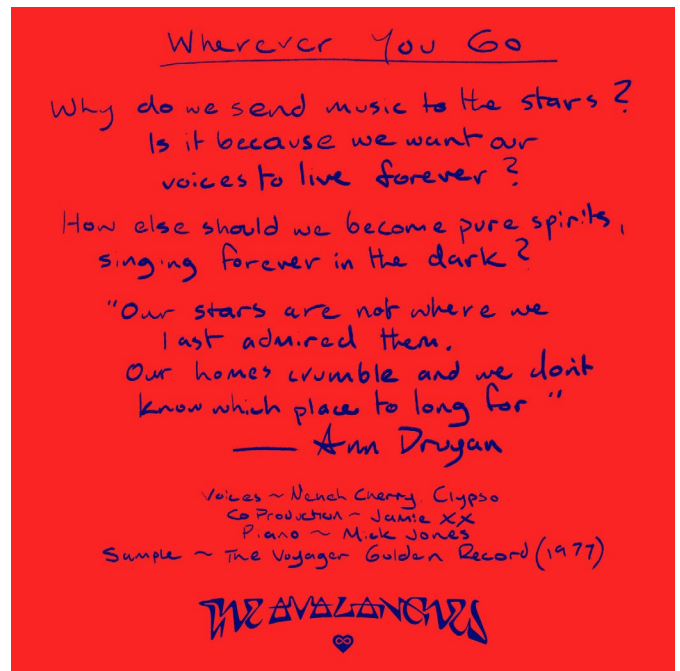 Wherever You Go
Why do we send music to the stars?
Is it because we want our
voices to live forever?
How else should we become pure spirits,
singing forever in the dark?
"Our stars are not where we
last admired them.
Our homes crumble and we don't
know which place to long for"
— Ann Druyan
Voices ~ Neneh Cherry. Clypso
Co Production ~ Jamie XX
Piano ~ Mick Jones
Sample ~ The Voyager Golden Record (1977)
THE AVALANCHES